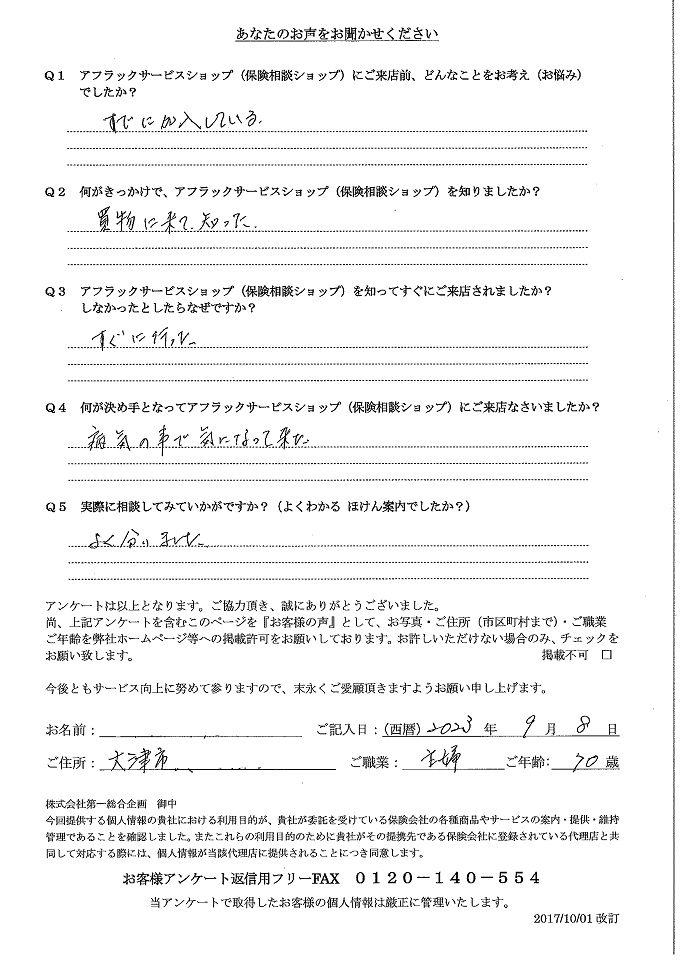 あなたのお声をお聞かせください
Q1 アフラックサービスショップ（保険相談ショップ）にご来店前、どんなことをお考え（お悩み）
でしたか？
すでに加入している.
Q2 何がきっかけで、アフラックサービスショップ（保険相談ショップ）を知りましたか？
買物に来て、知った.
Q3 アフラックサービスショップ（保険相談ショップ）を知ってすぐにご来店されましたか？
しなかったとしたらなぜですか？
すぐに行った
Q4 何が決め手となってアフラックサービスショップ（保険相談ショップ）にご来店なさいましたか？
病気の事で気になって来た
Q5 実際に相談してみていかがですか？（よくわかる ほけん案内でしたか？）
よく分りました
アンケートは以上となります。ご協力頂き、誠にありがとうございました。
尚、上記アンケートを含むこのページを『お客様の声』として、お写真・ご住所（市区町村まで）・ご職業
ご年齢を弊社ホームページ等への掲載許可をお願いしております。お許しいただけない場合のみ、チェックを
お願い致します。 掲載不可 □
今後ともサービス向上に努めて参りますので、末永くご愛顧頂きますようお願い申し上げます。
お名前： ご記入日：(西暦) 2023 年 9 月 8 日
ご住所： 大津市 ご職業： 主婦 ご年齢： 70 歳
株式会社第一総合企画 御中
今回提供する個人情報の貴社における利用目的が、貴社が委託を受けている保険会社の各種商品やサービスの案内・提供・維持
管理であることを確認しました。またこれらの利用目的のために貴社がその提携先である保険会社に登録されている代理店と共
同して対応する際には、個人情報が当該代理店に提供されることにつき同意します。
お客様アンケート返信用フリーFAX 0120－140－554
当アンケートで取得したお客様の個人情報は厳正に管理いたします。
2017/10/01 改訂